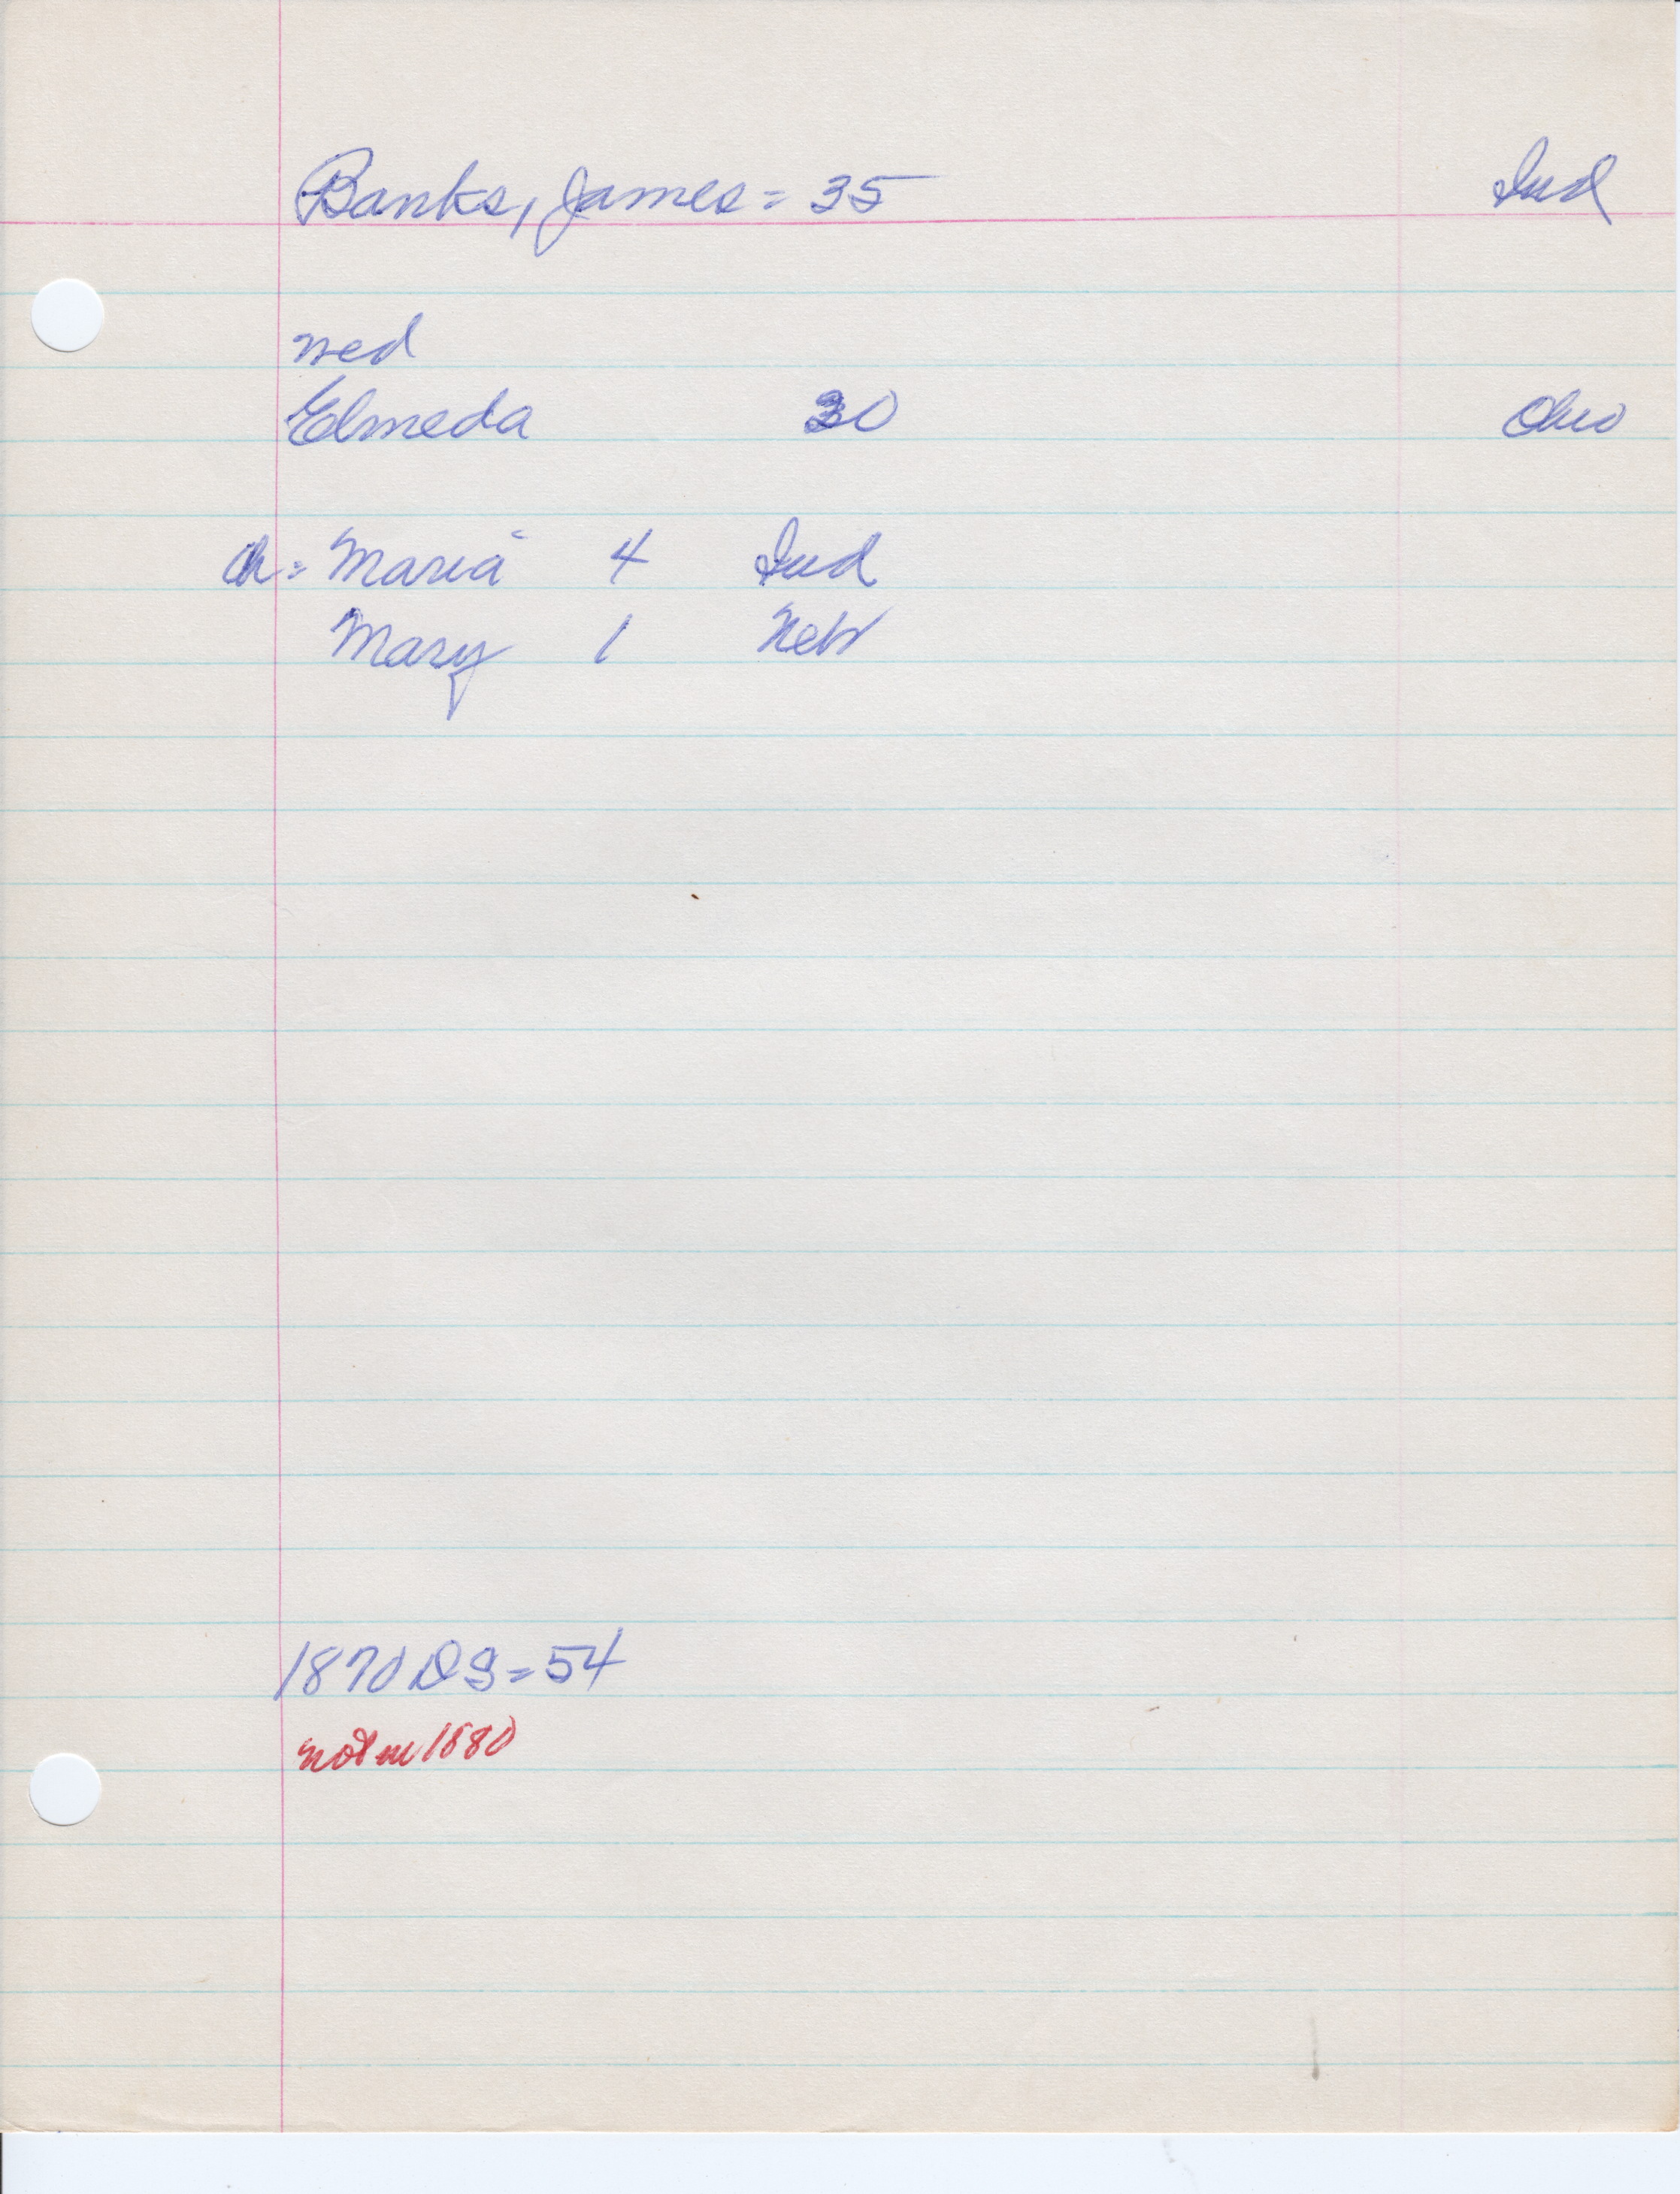 Banks, James = 35 Ind
wed
Elmeda 30 Ohio
ch = Maria 4 Ind
Mary 1 Neb
1870 DS = 54
not in 1880